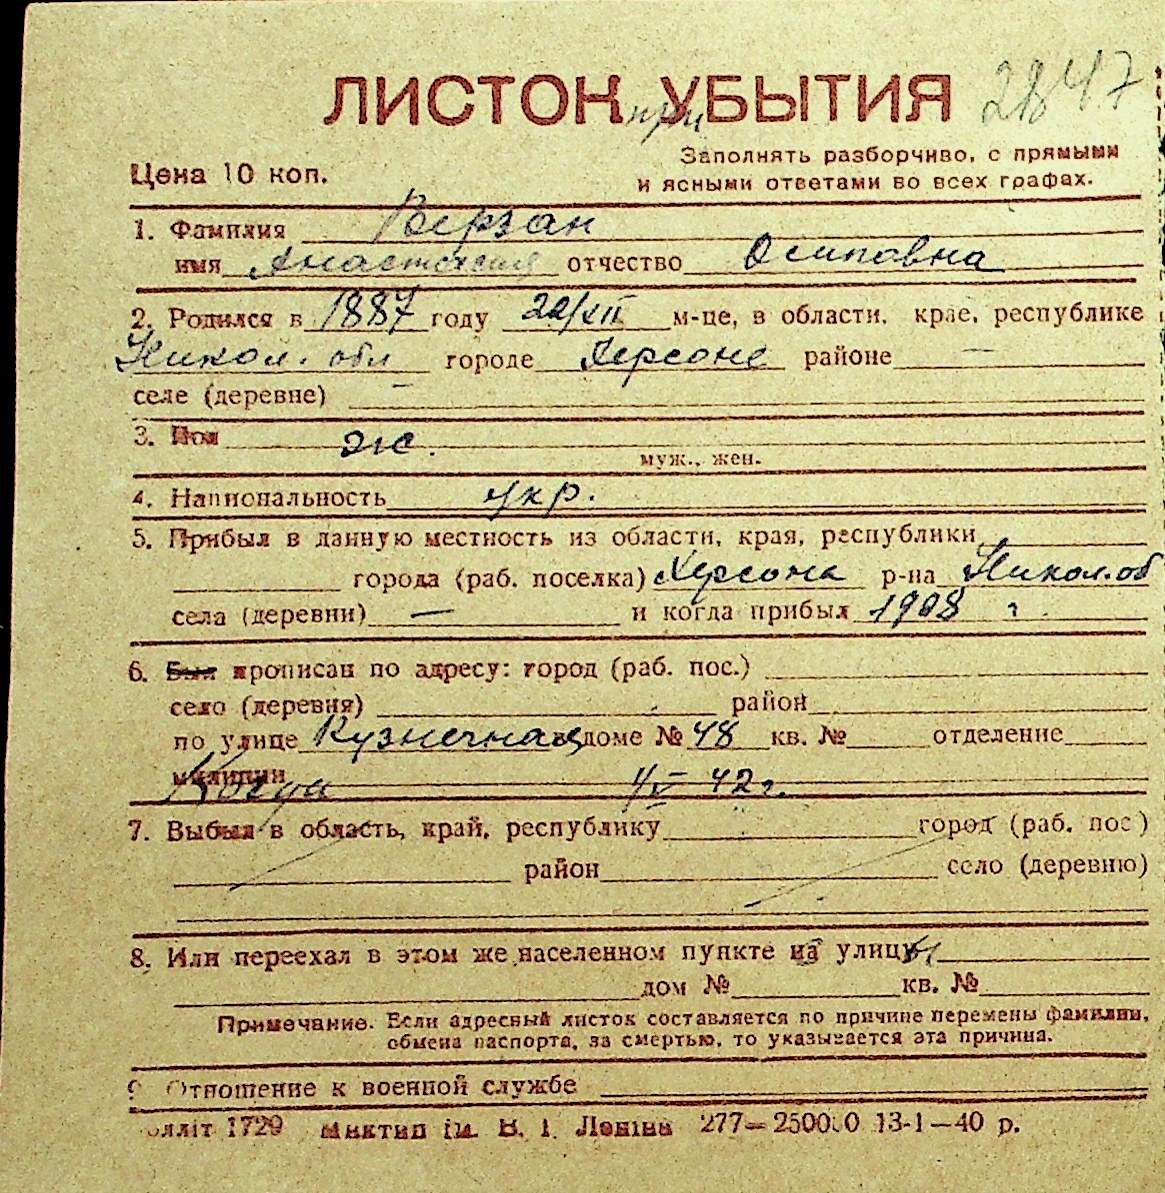 ЛИСТОК УБЫТИЯ 2847
при
Заполнять разборчиво, с прямыми
Цена 10 коп. и ясными ответами во всех графах.
1. Фамилия Верзан
имя Анастасия отчество Осиповна
2. Родился в 1887 году 22/XII м-це, в области, крае, республике
Никол. обл городе Херсоне районе —
селе (деревне) —
3. Пол ж.
муж., жен.
4. Национальность укр.
5. Прибыл в данную местность из области, края, республики
города (раб. поселка) Херсона р-на Никол. об
села (деревни) — и когда прибыл 1908 г
6. Был прописан по адресу: город (раб. пос.)
село (деревня) район
по улице Кузнечная в доме № 48 кв. № отделение
милиции Когда 1/V 42 г.
7. Выбыл в область, край, республику город (раб. пос)
район село (деревню)
8. Или переехал в этом же населенном пункте на улицу
дом № кв. №
Примечание. Если адресный листок составляется по причине перемены фамилии,
обмена паспорта, за смертью, то указывается эта причина.
9 Отношение к военной службе
олліт 1729 Миктип ім. В. І. Леніна 277—250000 13-1—40 р.